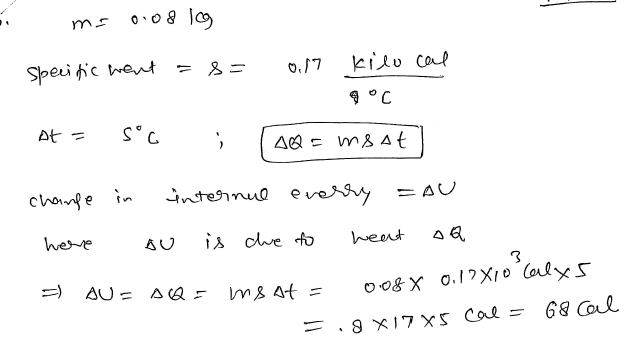 m = 0.08 kg
Specific heat = s = 0.17 kilo cal / °C
Δt = 5°C ; ΔQ = msΔt
change in internal energy = ΔU
here ΔU is due to heat ΔQ
⇒ ΔU = ΔQ = msΔt = 0.08 × 0.17×10³ cal × 5
= .8 × 17 × 5 cal = 68 cal